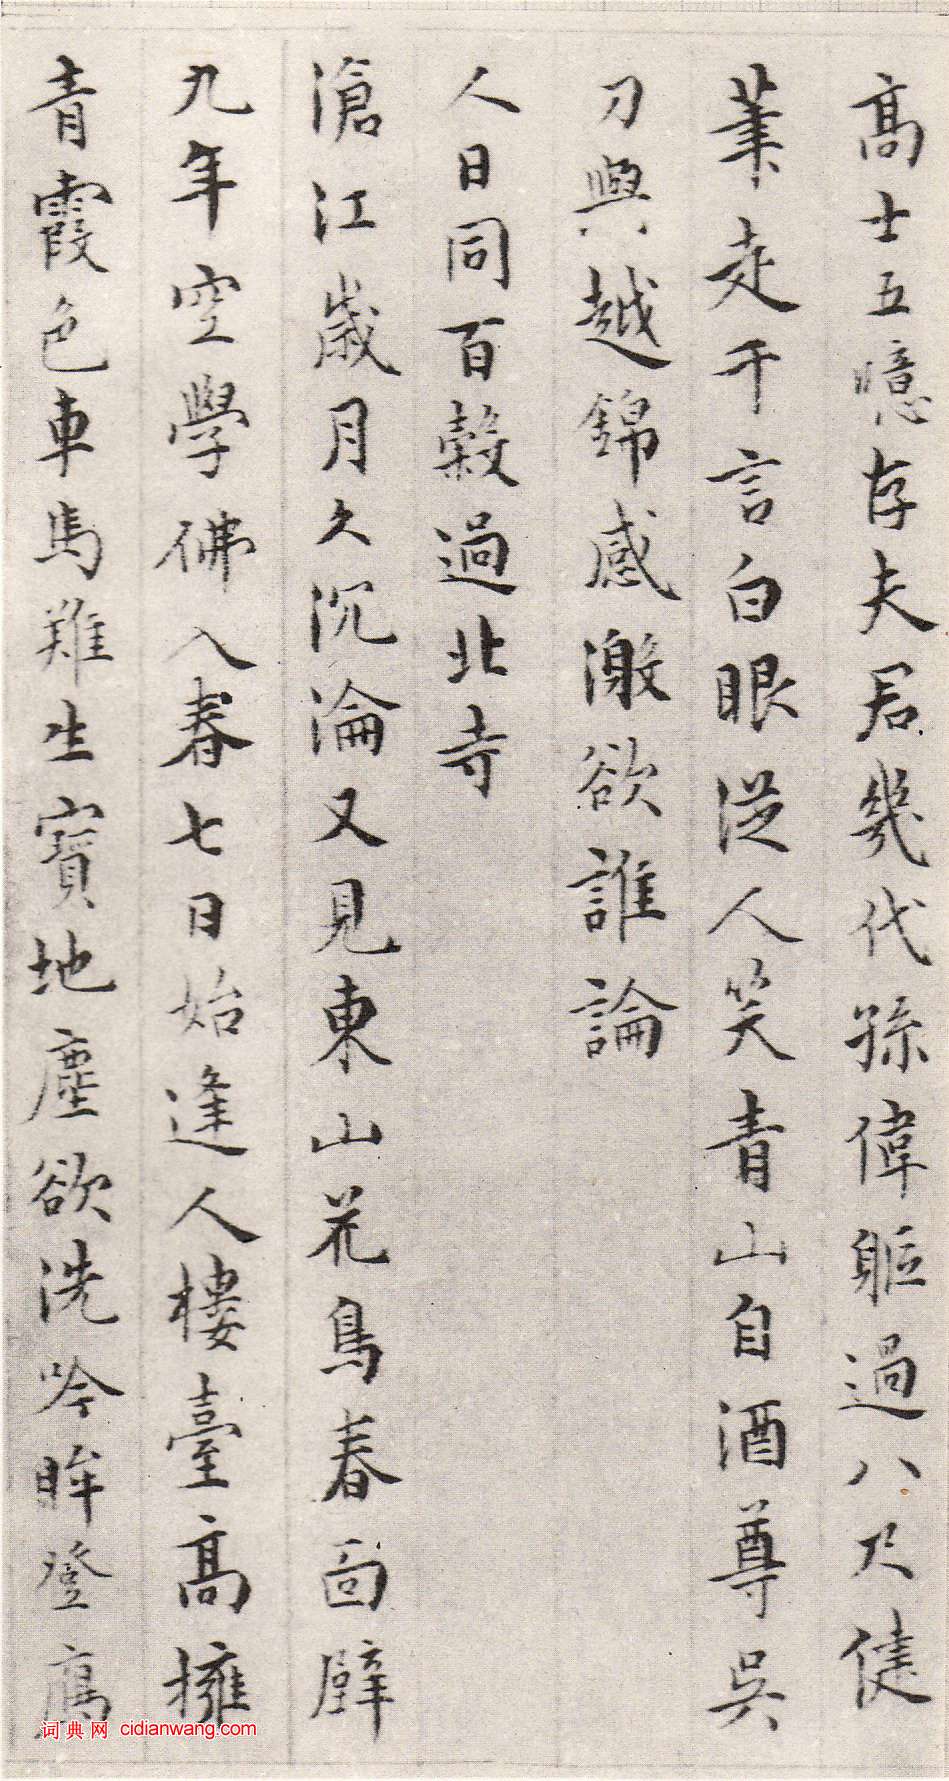 高士五噫存夫君幾代孫偉軀過八尺健
筆走千言白眼從人笑青山自酒尊吳
刀與越錦感激欲誰論
人日同百穀過北寺
滄江歲月久沉淪又見東山花鳥春面壁
九年空學佛入春七日始逢人樓臺高擁
青霞色車馬難生寶地塵欲洗吟眸登
词典网 cidianwang.com